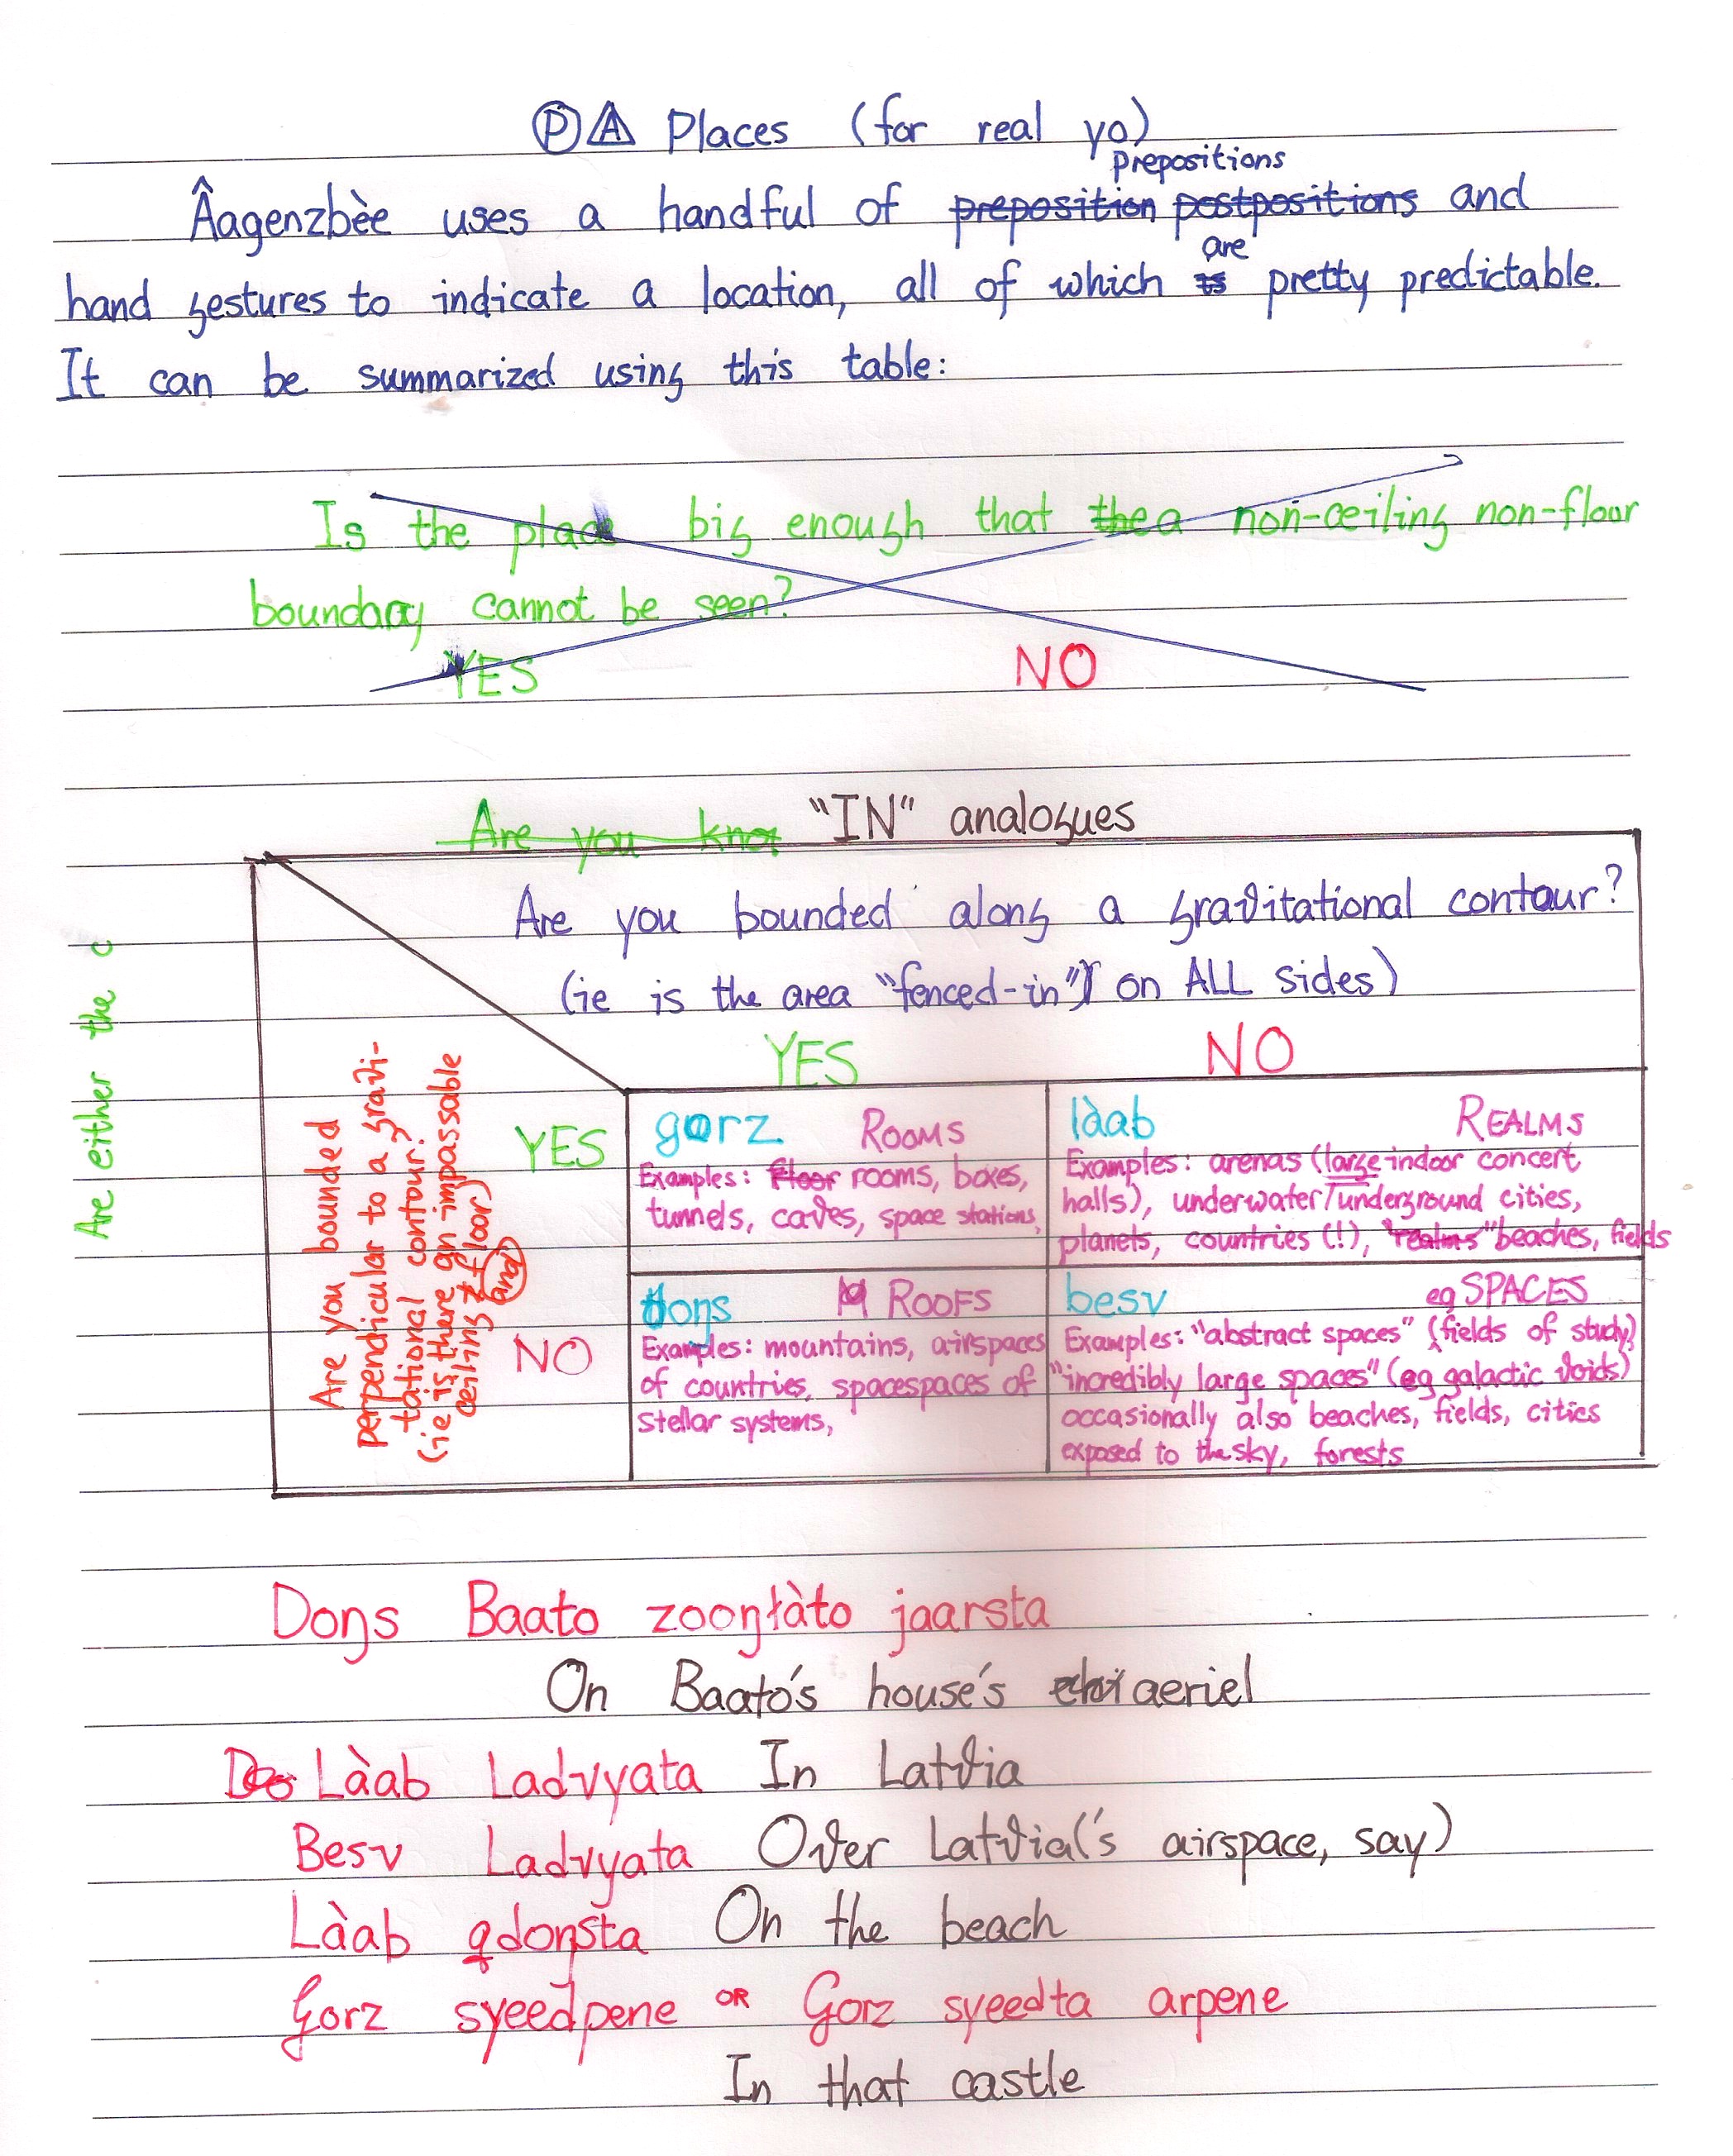 Ⓟ A Places (for real yo)
prepositions
Âagenzbèe uses a handful of preposition postpositions and
are
hand gestures to indicate a location, all of which is pretty predictable.
It can be summarized using this table:
Is the place big enough that the a non-ceiling non-floor
boundary cannot be seen?
YES NO
Are you knot "IN" analogues
Are you bounded along a gravitational contour?
(ie is the area "fenced-in") on ALL sides)
YES NO
Are either the c
Are you bounded
perpendicular to a gravi-
tational contour?
(ie is there an impassable
ceiling floor)
and
YES
NO
gorz ROOMS
Examples: floor rooms, boxes,
tunnels, caves, space stations,
làab REALMS
Examples: arenas (large indoor concert
halls), underwater/underground cities,
planets, countries (!), "realms" beaches, fields
doŋs ROOFS
Examples: mountains, airspaces
of countries, spacespaces of
stellar systems,
besv eg SPACES
Examples: "abstract spaces" (fields of study)
"incredibly large spaces" (eg galactic voids)
occasionally also beaches, fields, cities
exposed to the sky, forests
Doŋs Baato zooŋłàto jaarsta
On Baato's house's aeriel
Do Làab Ladvyata In Latvia
Besv Ladvyata Over Latvia('s airspace, say)
Làab qdoŋsta On the beach
Gorz syeedpene OR Gorz syeedta arpene
In that castle